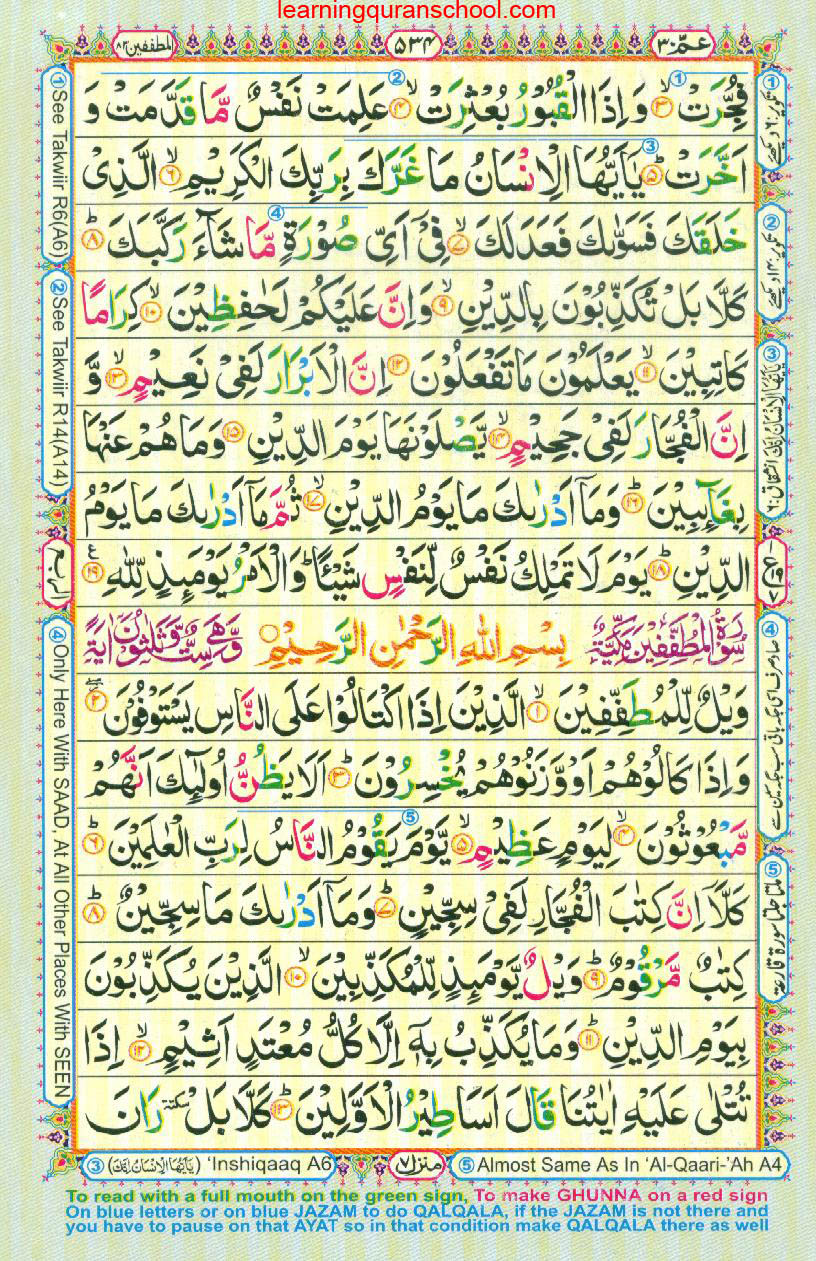 learningquranschool.com
المطففين ۸۳
۵۳۴
عمّ ۳۰
فُجِّرَتْ ۙ﴿۳﴾ وَاِذَا الْقُبُوْرُ بُعْثِرَتْ ۙ﴿۴﴾ عَلِمَتْ نَفْسٌ مَّا قَدَّمَتْ وَ
اَخَّرَتْ ؕ﴿۵﴾ يٰۤاَيُّهَا الْاِنْسَانُ مَا غَرَّكَ بِرَبِّكَ الْكَرِيْمِ ۙ﴿۶﴾ الَّذِىْ
خَلَقَكَ فَسَوّٰىكَ فَعَدَلَكَ ۙ﴿۷﴾ فِىْۤ اَىِّ صُوْرَةٍ مَّا شَآءَ رَكَّبَكَ ؕ﴿۸﴾
كَلَّا بَلْ تُكَذِّبُوْنَ بِالدِّيْنِ ۙ﴿۹﴾ وَاِنَّ عَلَيْكُمْ لَحٰفِظِيْنَ ۙ﴿۱۰﴾ كِرَامًا
كَاتِبِيْنَ ۙ﴿۱۱﴾ يَعْلَمُوْنَ مَا تَفْعَلُوْنَ ﴿۱۲﴾ اِنَّ الْاَبْرَارَ لَفِىْ نَعِيْمٍ ۙ﴿۱۳﴾ وَّ
اِنَّ الْفُجَّارَ لَفِىْ جَحِيْمٍ ۙ﴿۱۴﴾ يَّصْلَوْنَهَا يَوْمَ الدِّيْنِ ﴿۱۵﴾ وَمَا هُمْ عَنْهَا
بِغَآئِبِيْنَ ؕ﴿۱۶﴾ وَمَاۤ اَدْرٰىكَ مَا يَوْمُ الدِّيْنِ ۙ﴿۱۷﴾ ثُمَّ مَاۤ اَدْرٰىكَ مَا يَوْمُ
الدِّيْنِ ؕ﴿۱۸﴾ يَوْمَ لَا تَمْلِكُ نَفْسٌ لِّنَفْسٍ شَيْـًٔا ؕ وَالْاَمْرُ يَوْمَئِذٍ لِّلّٰهِ ﴿۱۹﴾
سُوْرَةُ الْمُطَفِّفِيْنَ مَكِّيَّةٌ بِسْمِ اللّٰهِ الرَّحْمٰنِ الرَّحِيْمِ وَّهِىَ سِتٌّ وَّثَلٰثُوْنَ اٰيَةً
وَيْلٌ لِّلْمُطَفِّفِيْنَ ۙ﴿۱﴾ الَّذِيْنَ اِذَا اكْتَالُوْا عَلَى النَّاسِ يَسْتَوْفُوْنَ ﴿۲﴾
وَاِذَا كَالُوْهُمْ اَوْ وَّزَنُوْهُمْ يُخْسِرُوْنَ ؕ﴿۳﴾ اَلَا يَظُنُّ اُولٰٓئِكَ اَنَّهُمْ
مَّبْعُوْثُوْنَ ۙ﴿۴﴾ لِيَوْمٍ عَظِيْمٍ ۙ﴿۵﴾ يَّوْمَ يَقُوْمُ النَّاسُ لِرَبِّ الْعٰلَمِيْنَ ؕ﴿۶﴾
كَلَّاۤ اِنَّ كِتٰبَ الْفُجَّارِ لَفِىْ سِجِّيْنٍ ؕ﴿۷﴾ وَمَاۤ اَدْرٰىكَ مَا سِجِّيْنٌ ؕ﴿۸﴾
كِتٰبٌ مَّرْقُوْمٌ ؕ﴿۹﴾ وَيْلٌ يَّوْمَئِذٍ لِّلْمُكَذِّبِيْنَ ۙ﴿۱۰﴾ الَّذِيْنَ يُكَذِّبُوْنَ
بِيَوْمِ الدِّيْنِ ؕ﴿۱۱﴾ وَمَا يُكَذِّبُ بِهٖۤ اِلَّا كُلُّ مُعْتَدٍ اَثِيْمٍ ۙ﴿۱۲﴾ اِذَا
تُتْلٰى عَلَيْهِ اٰيٰتُنَا قَالَ اَسَاطِيْرُ الْاَوَّلِيْنَ ؕ﴿۱۳﴾ كَلَّا بَلْ ٚ سكتة رَانَ
① See Takwiir R6(A6)
② See Takwiir R14(A14)
الربع
④ Only Here With SAAD, At All Other Places With SEEN
③ (يٰۤاَيُّهَا الْاِنْسَانُ اِنَّكَ) 'Inshiqaaq A6
منزل ۷
⑤ Almost Same As In 'Al-Qaari-'Ah A4
To read with a full mouth on the green sign, To make GHUNNA on a red sign
On blue letters or on blue JAZAM to do QALQALA, if the JAZAM is not there and
you have to pause on that AYAT so in that condition make QALQALA there as well